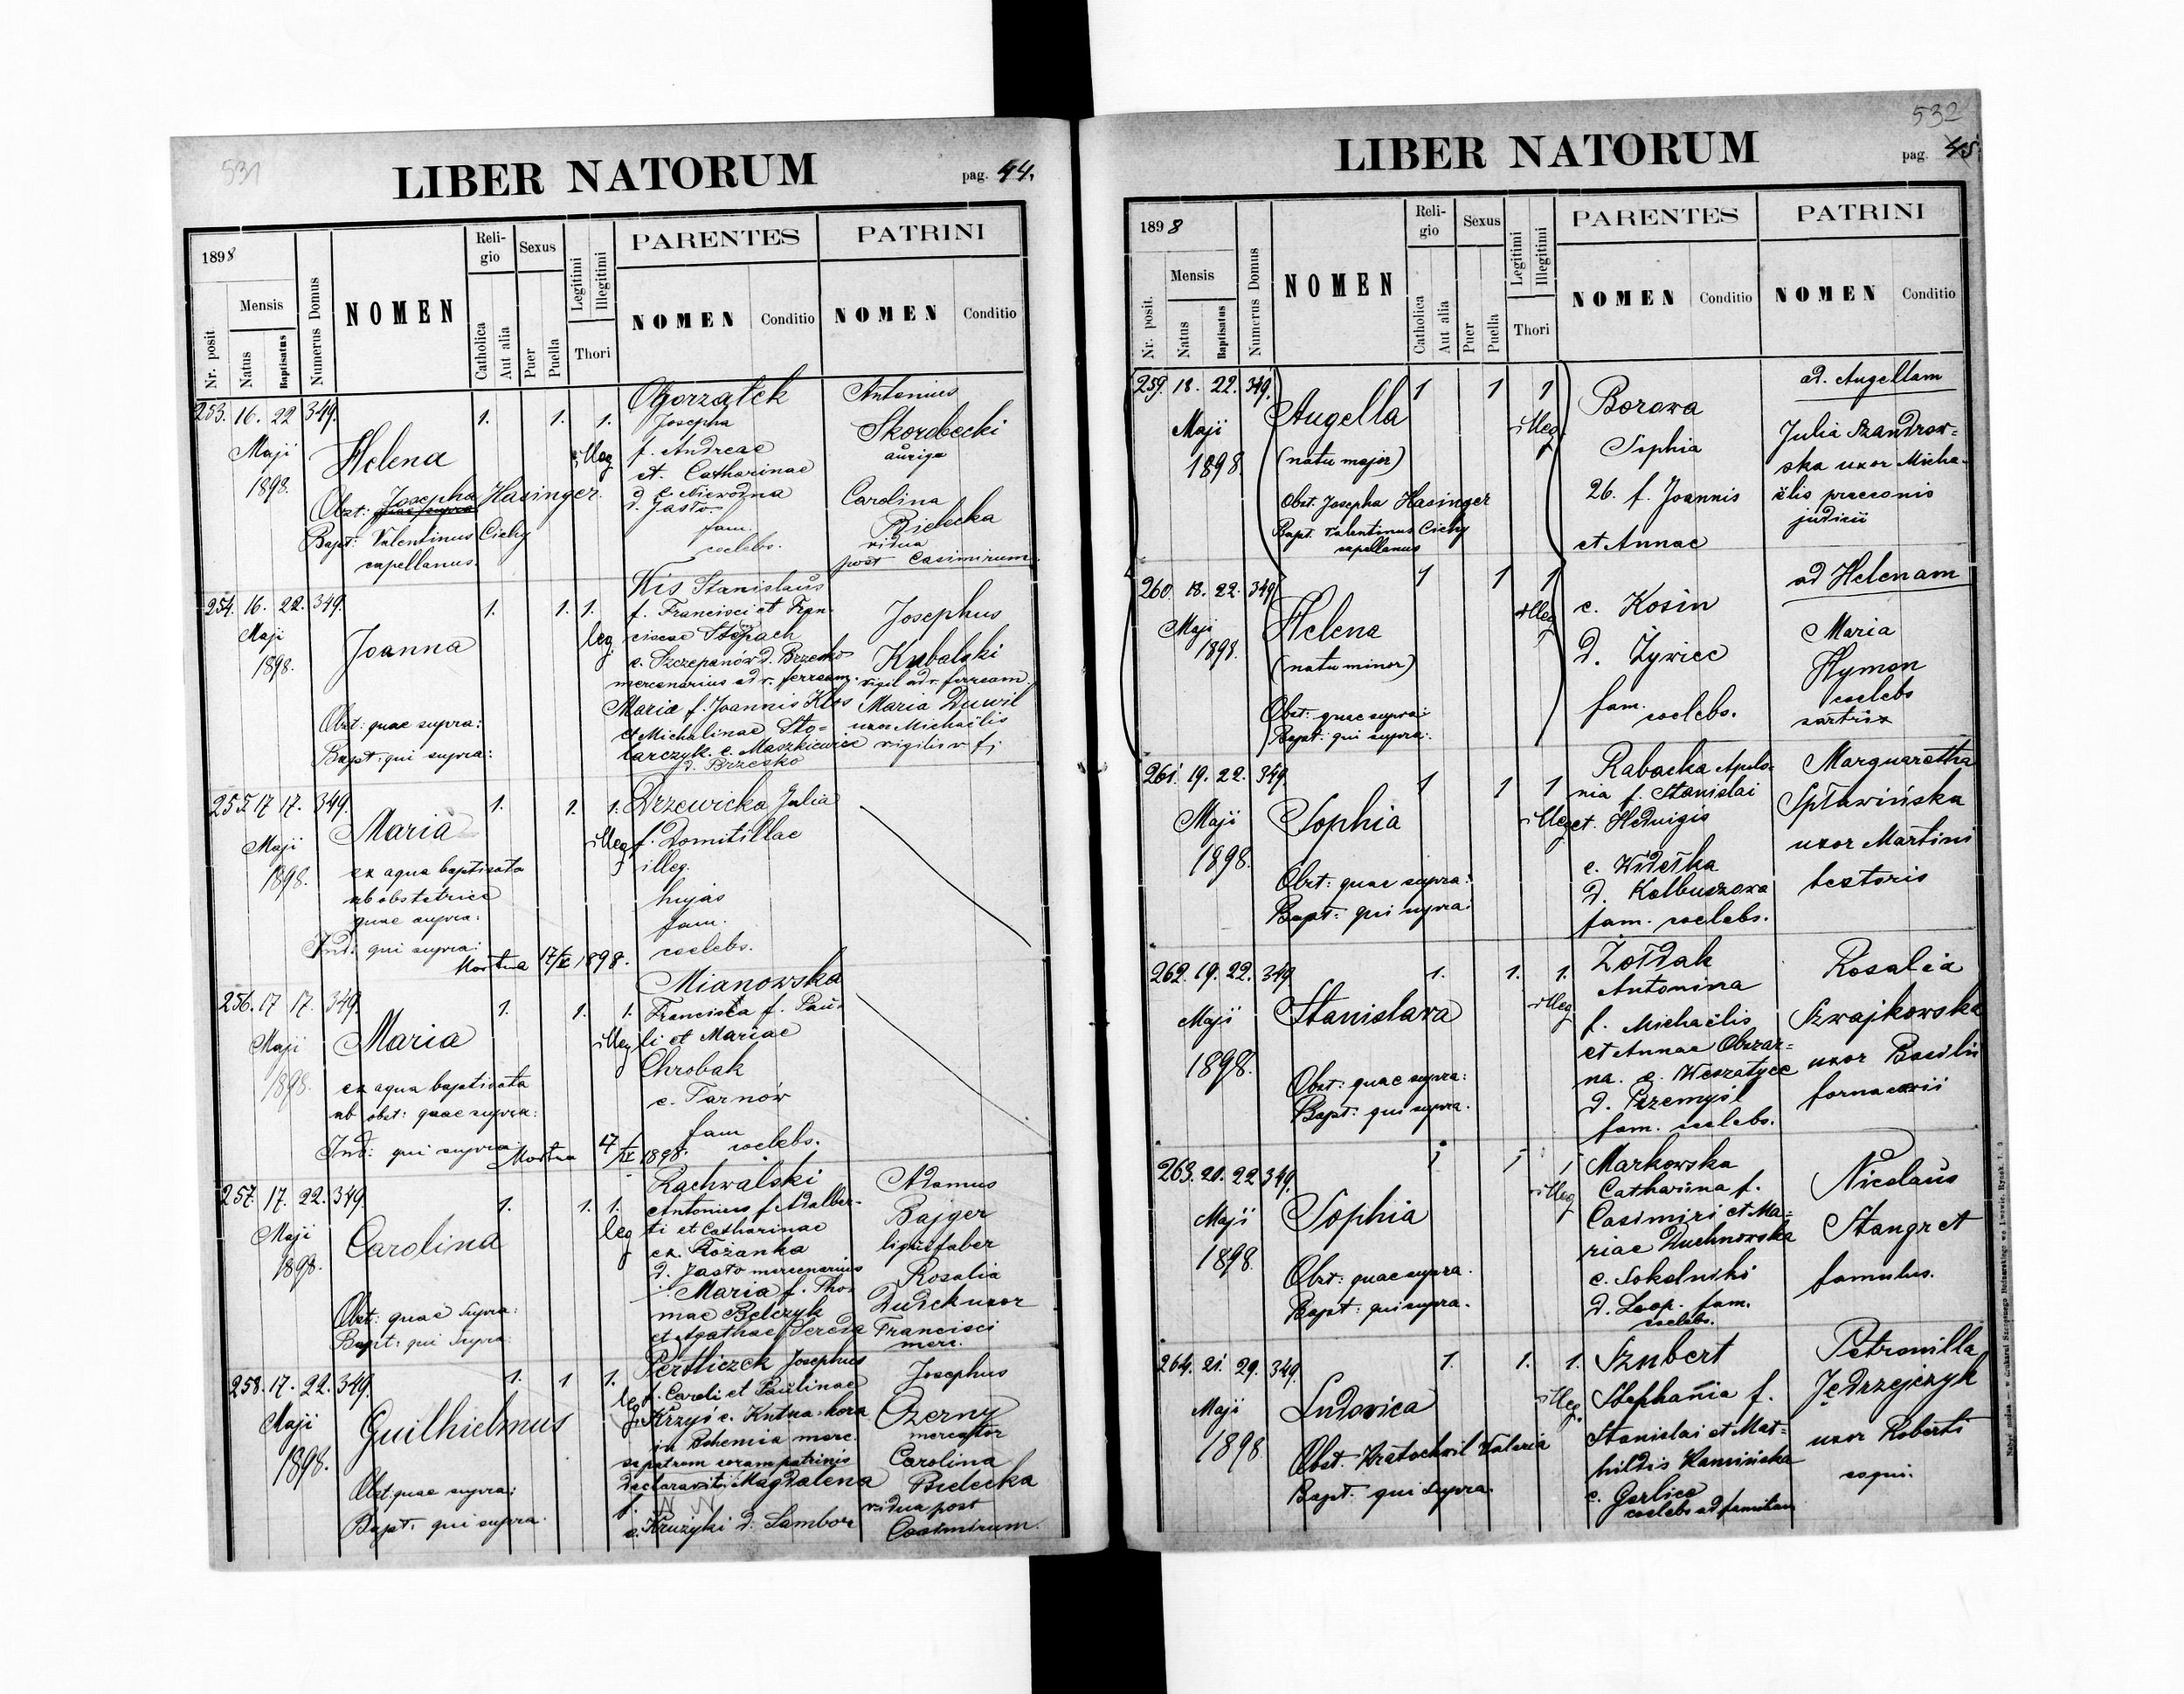 531
LIBER NATORUM
pag. 44.
1898
Nr. posit
Mensis
Natus
Baptisatus
Numerus Domus
NOMEN
Reli-
gio
Catholica
Aut alia
Sexus
Puer
Puella
Legitimi
Illegitimi
Thori
PARENTES
NOMEN
Conditio
PATRINI
NOMEN
Conditio
253. 16. 22 349.
Maji
1898.
Helena
Obst: Josepha Hasinger.
Bapt: Valentinus Cichy
capellanus.
1. 1. 1.
illeg
Josepha
f. Andreae
et. Catharinae
d. Jasło
fam.
coelebs.
Antonius
Skorobecki
auriga
Carolina
Bielecka
vidua
post Casimirum.
254. 16. 22. 349.
Maji
1898.
Joanna
Obst: quae supra:
Bapt: qui supra:
1. 1. 1.
leg
Kis Stanislaus
f. Francisci et Fran-
ciscae
c. Szczepanów d. Brzesko
mercenarius ad v. ferream.
Maria f. Joannis Klos
et Michalinae Sto-
larczyk. c. Maszkiewice
d. Brzesko
Josephus
Kubalski
vigil ad v. ferream.
Maria Duwil
uxor Michaëlis
vigilis v. f;
255 17 17. 349.
Maji
1898.
Maria
ex aqua baptisata
ab obstetrice
quae supra:
Ind: qui supra:
Mortua 17/V 1898.
1. 1. 1.
illeg
Drzewicka Julia
f. Domitillae
illeg.
hujas
fam.
coelebs.
256. 17 17. 349.
Maji
1898.
Maria
ex aqua baptisata
ab obst: quae supra:
Ind: qui supra
Mortua 17/V 1898.
1. 1. 1.
illeg
Mianowska
Francisca f. Pau-
li et Mariae
Chrobak
c. Tarnów
fam
coelebs.
257. 17. 22. 349
Maji
1898.
Carolina
Obst: quae supra:
Bapt: qui supra:
1. 1. 1.
leg
Rachwalski
Antonius f. Adalber-
ti et Catharinae
ex. Rożanka
d. Jasło mercenarius
Maria f. Tho-
mae Belczyk
et Agathae Sereda
Adamus
Bajger
lignifaber
Rosalia
Dudek uxor
Francisci
merc.
258. 17. 22. 349.
Maji
1898.
Guilhielmus
Obst: quae supra:
Bapt: qui supra.
1. 1 1.
leg
Perdliczek Josephus
f. Caroli et Paulinae
Krzyś c. Kutna-hora
in Bohemia merc.
se patrem coram patrinis
declaravit; Magdalena
f. N N
c. Krużyki d. Sambor
Josephus
Czerny
mercator
Carolina
Bielecka
vidua post
Casimirum.
532
LIBER NATORUM
pag. 45.
1898
Nr. posit.
Mensis
Natus
Baptisatus
Numerus Domus
NOMEN
Reli-
gio
Catholica
Aut alia
Sexus
Puer
Puella
Legitimi
Illegitimi
Thori
PARENTES
NOMEN
Conditio
PATRINI
NOMEN
Conditio
259. 18. 22. 349.
Maji
1898
Angella
(natu major)
Obst. Josepha Hasinger
Bapt. Valentinus Cichy
capellanus
1 1 1
illeg
Borowa
Sophia
26. f. Joannis
et Annae
ad. Angellam
Julia Szandrow-
ska uxor Micha-
ëlis praeconis
judicii
260. 18. 22. 349
Maji
1898.
Helena
(natu minor)
Obst: quae supra:
Bapt: qui supra:
1 1 1
illeg
c. Kosin
d. Żywiec
fam.
coelebs.
ad Helenam
Maria
Hymon
coelebs
sartrix
261. 19. 22. 349.
Maji
1898.
Sophia
Obst: quae supra:
Bapt: qui supra:
1 1 1
illeg
Rabacka Apolo-
nia f. Stanislai
et. Hedvigis
c. Widełka
d. Kolbuszowa
fam. coelebs.
Marguaretha
Spławińska
uxor Martini
textoris
262. 19. 22. 349
Maji
1898.
Stanislava
Obst: quae supra:
Bapt: qui supra.
1. 1. 1.
illeg
Żołdak
Antonina
f. Michaëlis
et Annae Obszar-
na. c. Weszatyce
d. Przemyśl
fam. coelebs.
Rosalia
Szwajkowska
uxor Basilii
fornacarii
263. 20. 22 349.
Maji
1898
Sophia
Obst: quae supra.
Bapt: qui supra.
1 1 1
illeg
Markowska
Catharina f.
Casimiri et Ma-
riae Duchnowska
c. Sokolniki
d. Leop. fam.
coelebs.
Nicolaus
Stangret
famulus.
264. 21. 29. 349.
Maji
1898
Ludovica
Obst. Kratochwil Valeria
Bapt. qui supra.
1. 1. 1.
illeg.
Sznbert
Stephania f.
Stanislai et Mat-
hildis Kamińska
c. Gorlice
coelebs ad familam
Petronilla
Jędrzejczyk
uxor Roberti
coqui.